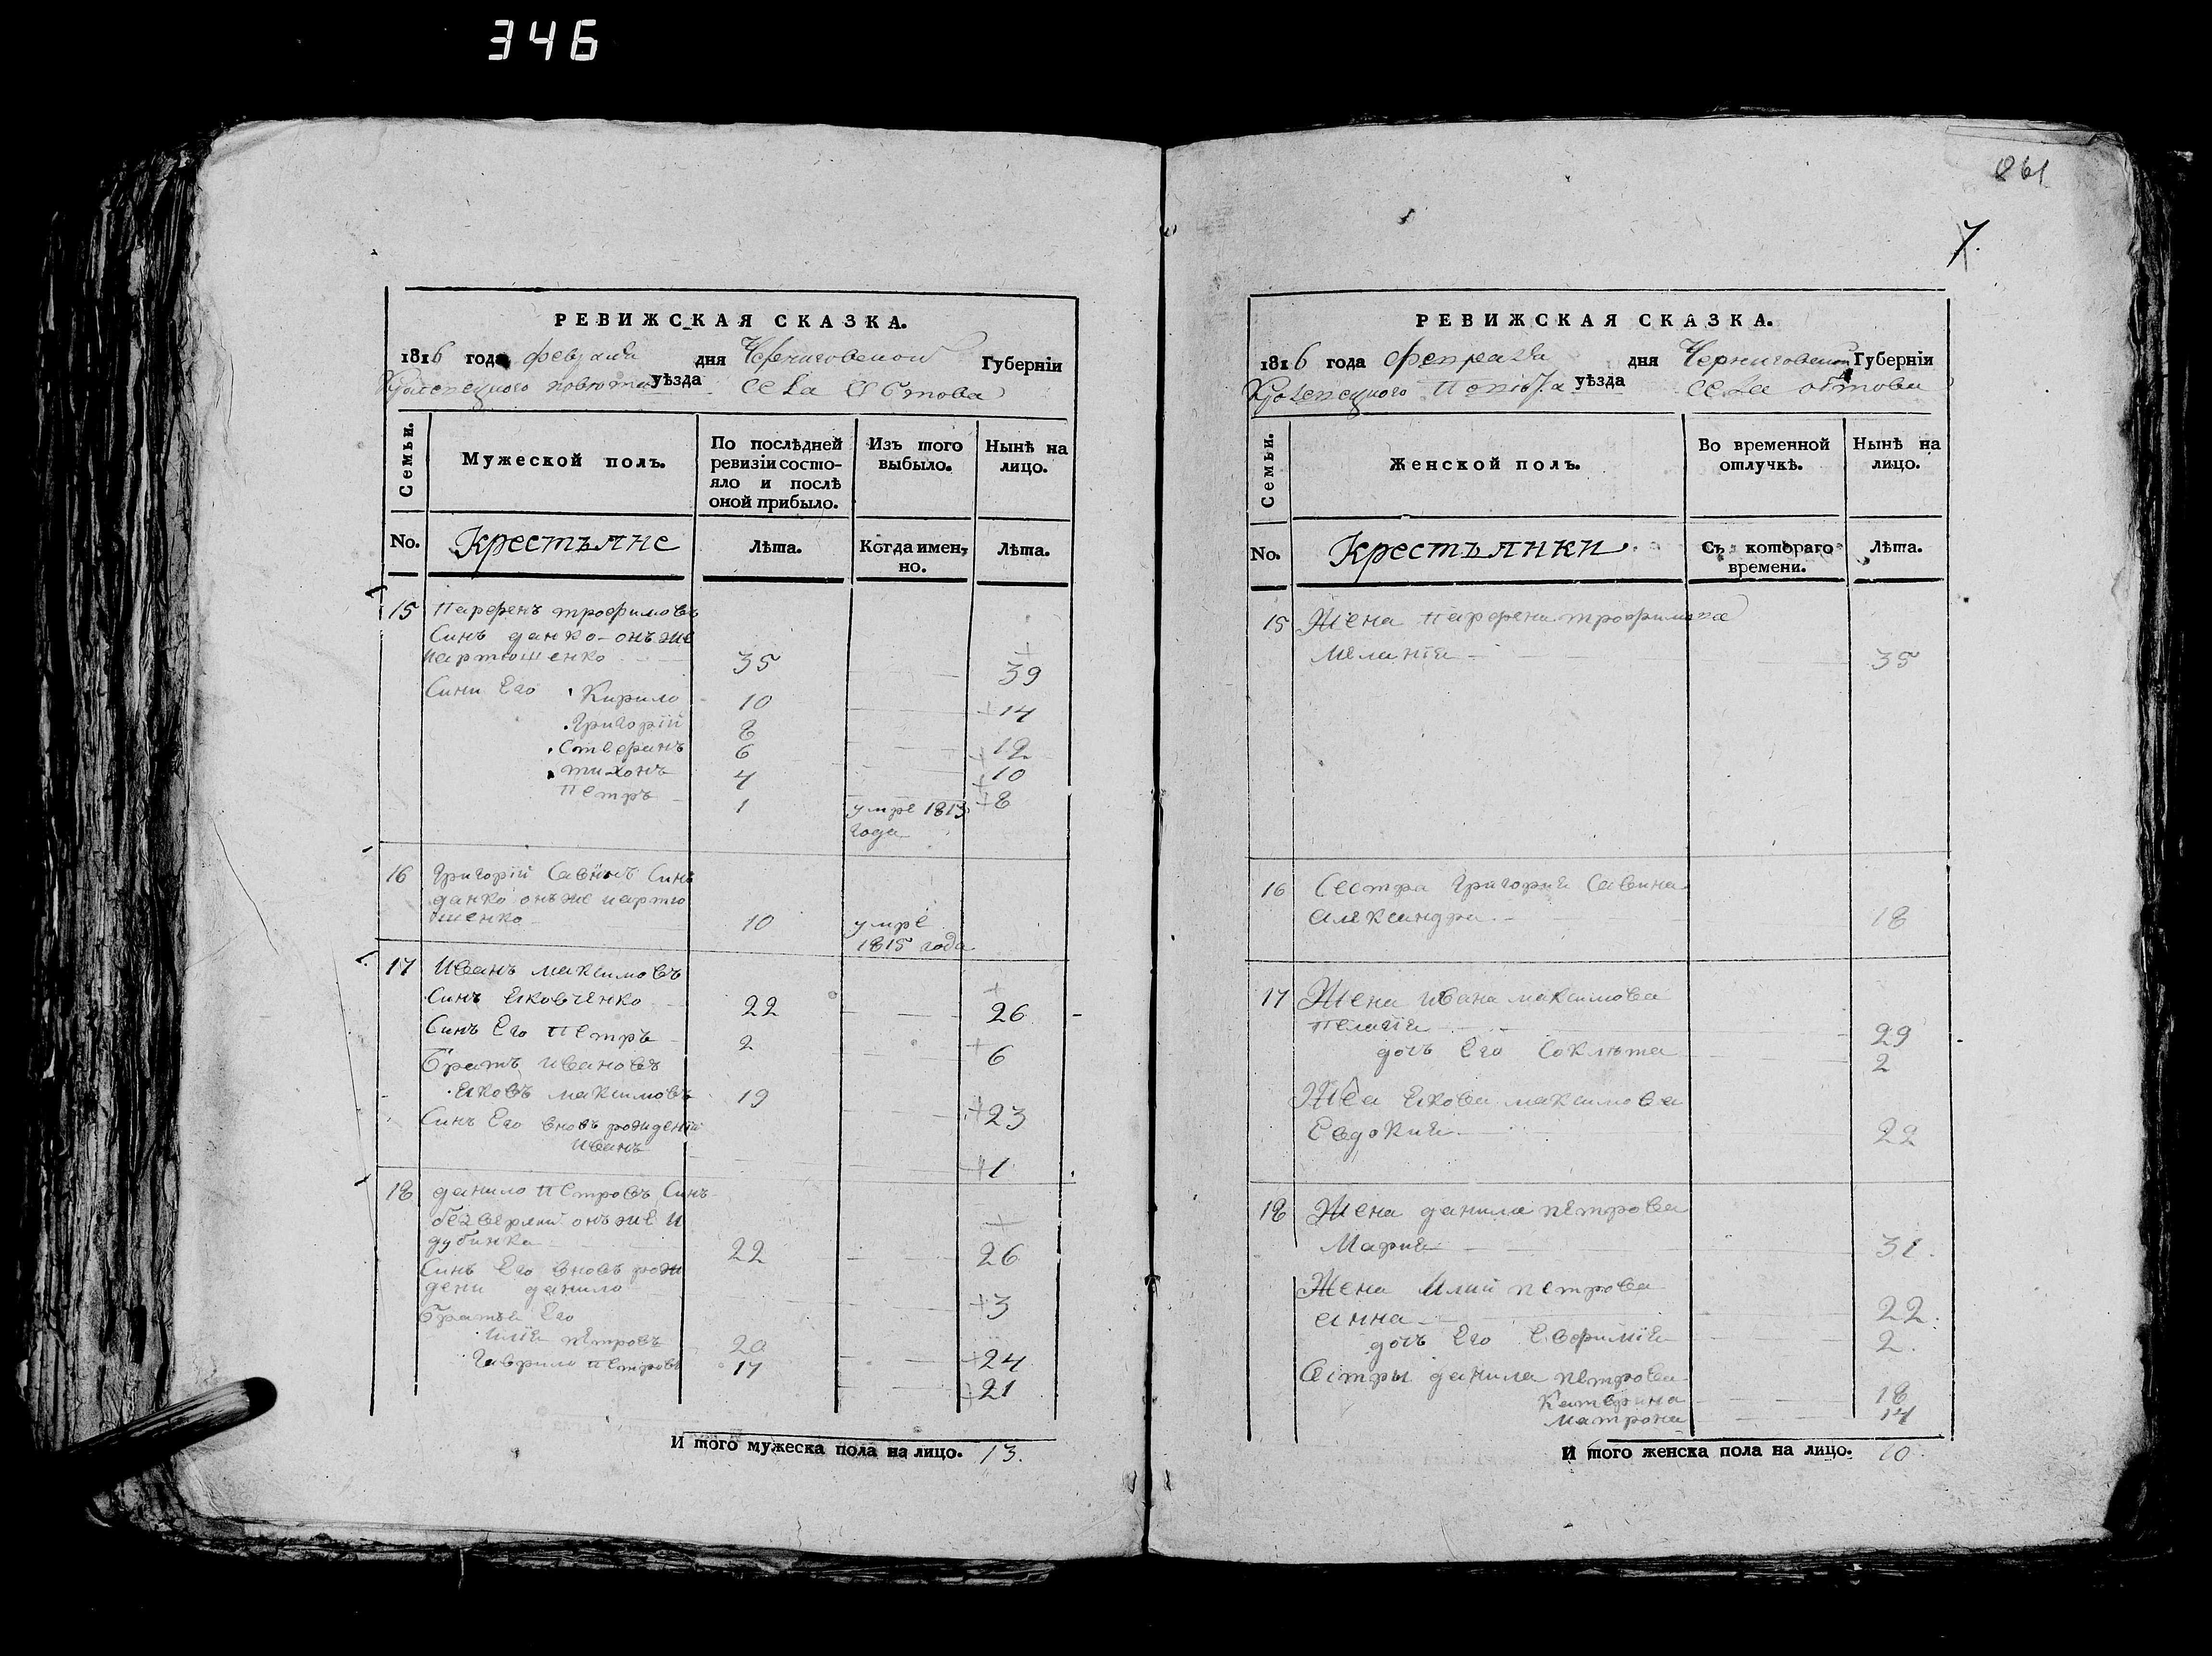 346
861
7.
РЕВИЖСКАЯ СКАЗКА.
1816 года февраля дня Черниговской Губерніи
Кролевецкого повета уѣзда села Обтова
Семьи.
Мужеской полъ.
По послѣдней ревизіи состо-
яло и послѣ
оной прибыло.
Изъ того
выбыло.
Нынѣ на
лицо.
No.
Крестъяне
Лѣта.
Когда имен-
но.
Лѣта.
15 Парфенъ трофимовъ
Синъ данко онъ же
мартюшенко 35 39
Сини Его Кирило 10 14
Григорій 8 12
Стефанъ 6 10
тихонъ 4 8
Петръ 1 умре 1813
года
16 Григорій Савинъ Синъ
данко онъ же мартю
шенко 10 умре
1815 года
17 Иванъ максимовъ
Синъ Яковченко 22 26
Синъ Его Петръ 2 6
Братъ Ивановъ
Яковъ максимовъ 19 23
Синъ Его вновь рожденій
иванъ 1
18 данило Петровъ Синъ
онъ же и
дубинка 22 26
Синъ Его вновь рож
дени данило 3
Братья Его
илія петровъ 20 24
Гаврило петровъ 17 21
И того мужеска пола на лицо. 13.
РЕВИЖСКАЯ СКАЗКА.
1816 года февраля дня Черниговской Губерніи
Кролевецкого Повѣта уѣзда села обтова
Семьи.
Женской полъ.
Во временной
отлучкѣ.
Нынѣ на
лицо.
No.
Крестъянки.
Съ котораго
времени.
Лѣта.
15 Жена парфена трофимова
Меланія 35
16 Сестра Григория Савина
александра 18
17 Жена ивана максимова
пелагія 29
дочъ Его 2
Жена Якова максимова
Евдокия 22
18 Жена данила петрова
Мария 31.
Жена илии петрова
анна 22.
дочъ Его Евфимія 2.
Сестры данила петрова
Катерина 18
матрона 14
И того женска пола на лицо. 10.